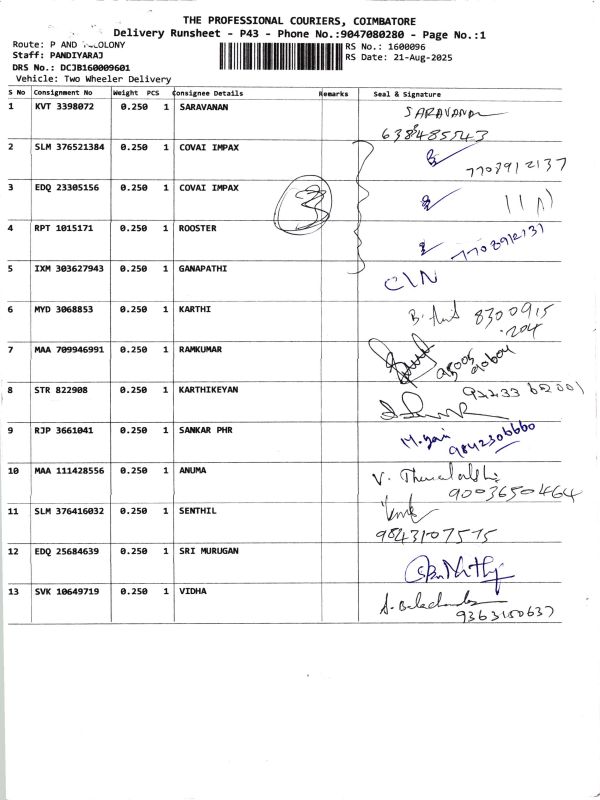 THE PROFESSIONAL COURIERS, COIMBATORE
Delivery Runsheet - P43 - Phone No.:9047080280 - Page No.:1
Route: P AND COLONY
RS No.: 1600096
Staff: PANDIYARAJ
RS Date: 21-Aug-2025
DRS No.: DCJB160009601
Vehicle: Two Wheeler Delivery
S No Consignment No Weight PCS Consignee Details Remarks Seal & Signature
1 KVT 3398072 0.250 1 SARAVANAN SARAVANAN
2 SLM 376521384 0.250 1 COVAI IMPAX
7708912137
3 EDQ 23305156 0.250 1 COVAI IMPAX
4 RPT 1015171 0.250 1 ROOSTER
5 IXM 303627943 0.250 1 GANAPATHI
6 MYD 3068853 0.250 1 KARTHI 8300915
204
7 MAA 709946991 0.250 1 RAMKUMAR
8 STR 822908 0.250 1 KARTHIKEYAN
9 RJP 3661041 0.250 1 SANKAR PHR
9842306660
10 MAA 111428556 0.250 1 ANUMA
9003650464
11 SLM 376416032 0.250 1 SENTHIL
9843107575
12 EDQ 25684639 0.250 1 SRI MURUGAN
13 SVK 10649719 0.250 1 VIDHA
9363150637